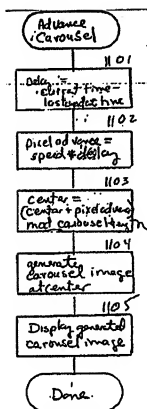 Advance
Carousel
1101
Delay =
current time -
last update time
1102
pixel advance =
speed * delay
1103
center =
(center + pixel advance)
mod carousel length
1104
generate
carousel image
at center
1105
Display generated
carousel image
Done